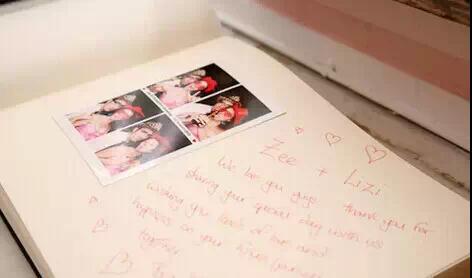 Zee + Lizi
We love you guys thank you for
sharing your special day with us
wishing you loads of love and
happiness on your future journey
together